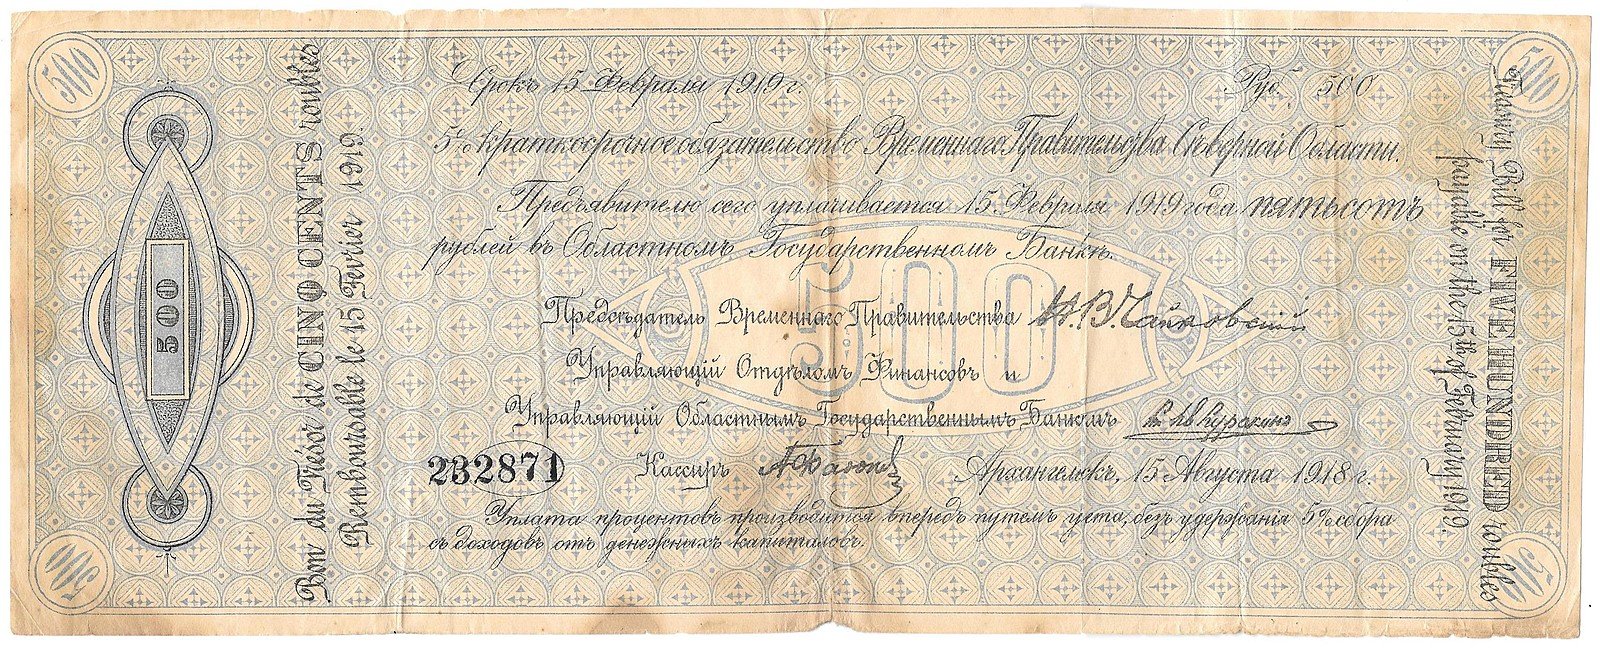 500
500
Срокъ 15 Февраля 1919 г.
Руб. 500
5% краткосрочное обязательство Временнаго Правительства Сѣверной Области.
Предъявителю сего уплачивается 15 Февраля 1919 года пятьсотъ
рублей въ Областномъ Государственномъ Банкѣ.
500
Предсѣдатель Временнаго Правительства Н.В. Чайковский
Управляющій Отдѣломъ Финансовъ и
Управляющій Областнымъ Государственнымъ Банкомъ
232871
Кассиръ
Архангельскъ, 15 Августа 1918 г.
Уплата процентовъ производится впередъ путемъ учета, безъ удержанія 5% сбора
съ доходовъ отъ денежныхъ капиталовъ.
500
Bon du Trésor de CINQ CENTS roubles
Remboursable le 15 Fevrier 1919.
Treasury Bill for FIVE HUNDRED roubles
payable on the 15th of February 1919
500
500